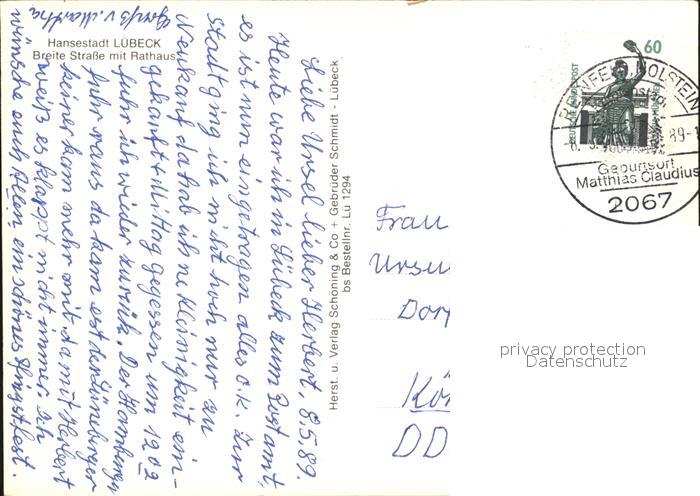 Hansestadt LÜBECK
Breite Straße mit Rathaus
Liebe Ursel lieber Herbert, 8.5.89.
Heute war ich in Lübeck zum
es ist nun eingetragen alles o.k. Zur
Stadt ging ich nicht hoch nur zu
Neukauf da hab ich ne Kleinigkeit ein-
gekauft + Mittag gegessen um 1202
fuhr ich wieder zurück. Der Hamburger
fuhr raus da kam erst der Lüneburger
keiner kam mehr mit da mit Herbert
weiß es klappt nicht immer. Ich
wünsche euch Allen ein schönes Pfingstfest.
Gruß v. Martha
Herst. u. Verlag Schöning & Co + Gebrüder Schmidt - Lübeck
bs Bestellnr. Lü 1294
60
DEUTSCHE BUNDESPOST
HOLSTEIN
89-
Geburtsort
Matthias Claudius
2067
Frau
Ursu
Dorf
Kö
DD
privacy protection
Datenschutz